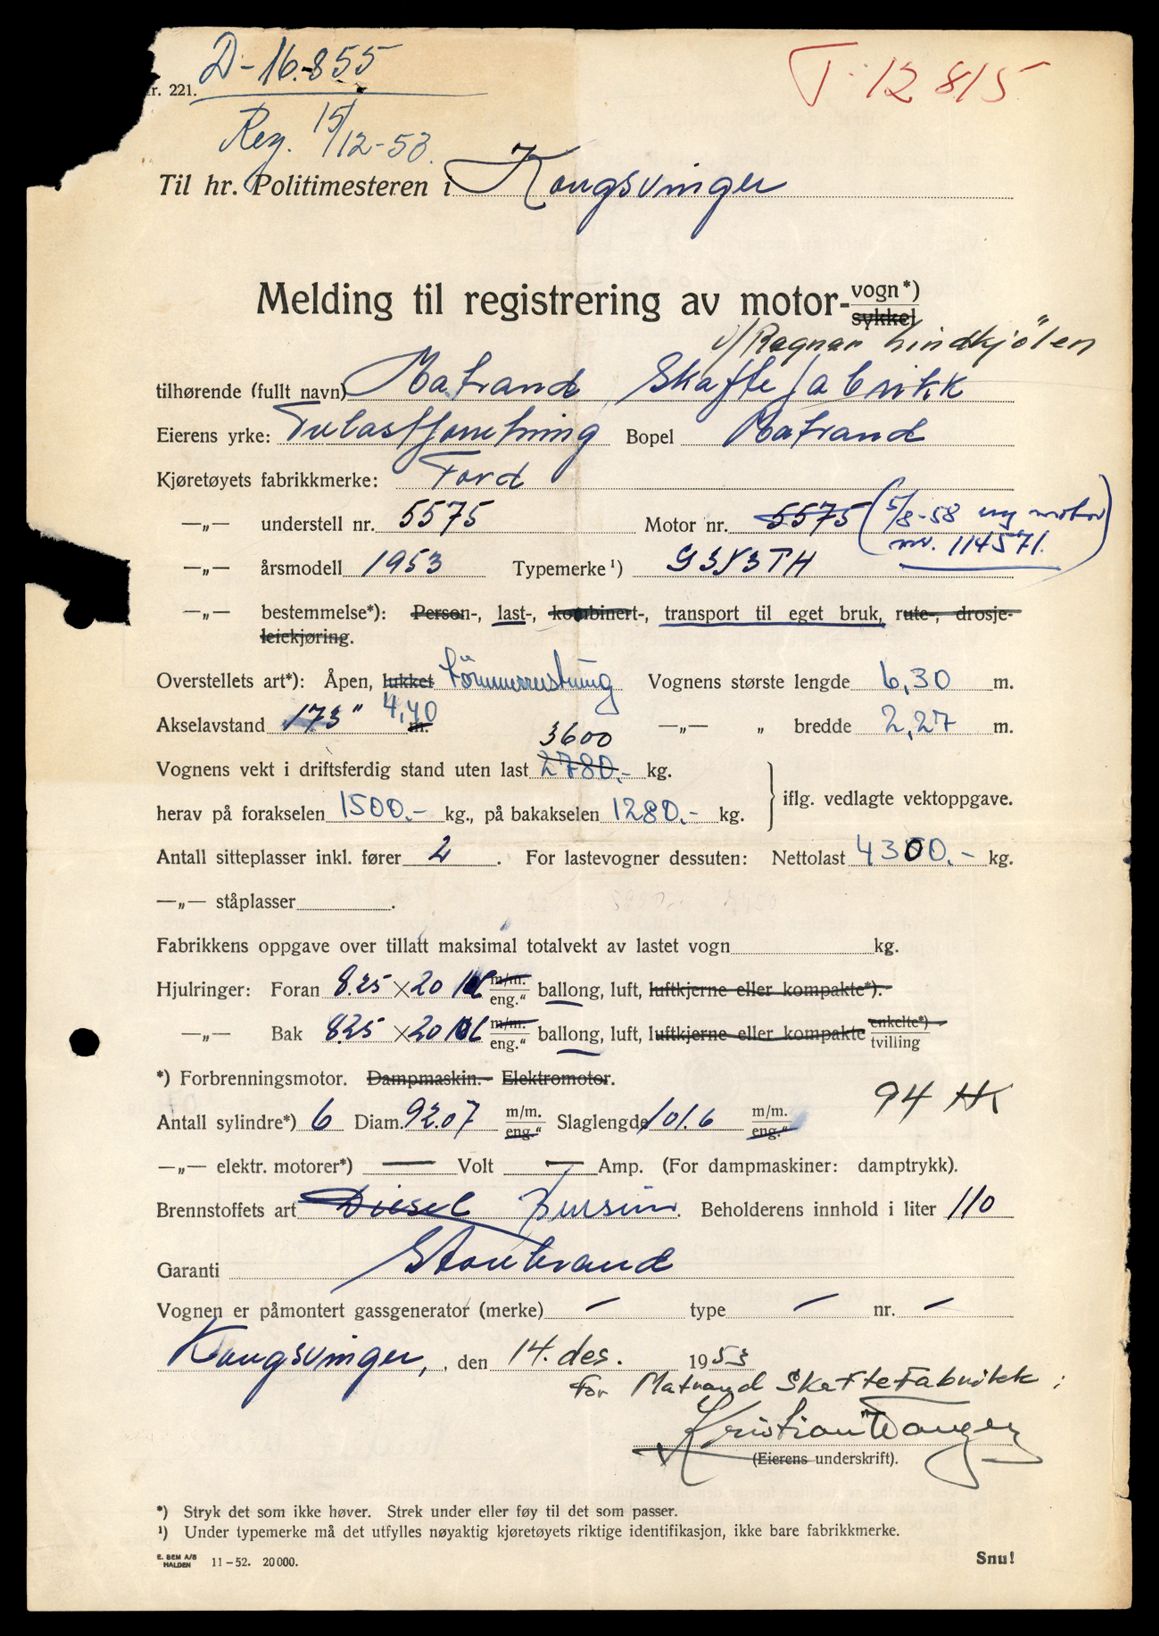 D-16.855
T-12815
r. 221.
Reg. 15/12-53.
Til hr. Politimesteren i Kongsvinger
Melding til registrering av motor-vogn*)
sykkel
v/Ragnar Lindkjölen
tilhørende (fullt navn) Matrand Skaftefabrikk
Eierens yrke: Bopel Matrand
Kjøretøyets fabrikkmerke: Ford
—„— understell nr. 5575 Motor nr. 5575 (5/8-58 ny motor
nr. 114571.)
—„— årsmodell 1953 Typemerke¹)
—„— bestemmelse*): Person-, last-, kombinert-, transport til eget bruk, rute-, drosje-
leiekjøring.
Overstellets art*): Åpen, lukket tömmerrustning Vognens største lengde 6,30 m.
Akselavstand 173" 4,40 m. —„— „ bredde 2,27 m.
3600
Vognens vekt i driftsferdig stand uten last 2780.- kg.
iflg. vedlagte vektoppgave.
herav på forakselen 1500.- kg., på bakakselen 1280.- kg.
Antall sitteplasser inkl. fører 2. For lastevogner dessuten: Nettolast 4300.- kg.
—„— ståplasser .
Fabrikkens oppgave over tillatt maksimal totalvekt av lastet vogn kg.
Hjulringer: Foran 8.25 × 20 m/m. eng." ballong, luft, luftkjerne eller kompakte*).
—„— Bak 8.25 × 20 m/m. eng." ballong, luft, luftkjerne eller kompakte enkelte*) tvilling
*) Forbrenningsmotor. Dampmaskin. Elektromotor.
94 HK
Antall sylindre*) 6 Diam. 92.07 m/m. eng." Slaglengde 101.6 m/m. eng."
—„— elektr. motorer*) — Volt — Amp. (For dampmaskiner: damptrykk).
Brennstoffets art Diesel Bensin. Beholderens innhold i liter 110
Garanti Storebrand
Vognen er påmontert gassgenerator (merke) – type – nr. –
Kongsvinger, , den 14. des. 1953
For Matrand Skaftefabrikk:
Kristian Tangen
(Eierens underskrift).
*) Stryk det som ikke høver. Strek under eller føy til det som passer.
¹) Under typemerke må det utfylles nøyaktig kjøretøyets riktige identifikasjon, ikke bare fabrikkmerke.
E. BEM A/S
HALDEN 11-52. 20 000.
Snu!